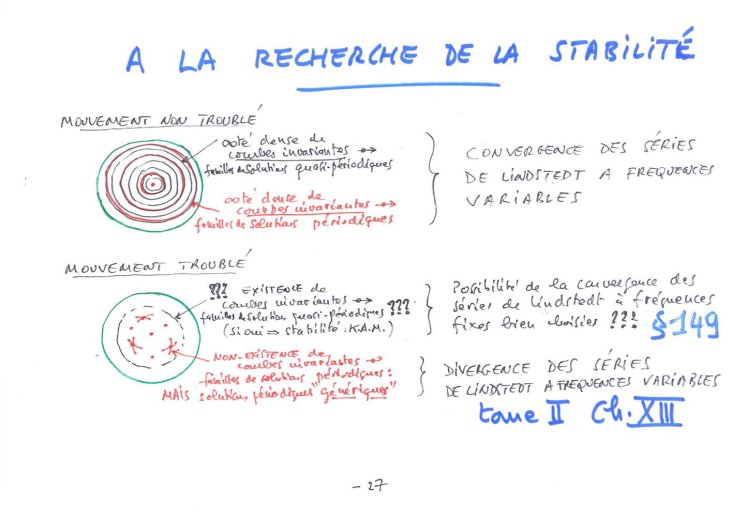 A LA RECHERCHE DE LA STABILITÉ
MOUVEMENT NON TROUBLÉ
∞té dense de
courbes invariantes ↔
familles de solutions quasi-périodiques
∞té dense de
courbes invariantes ↔
familles de solutions périodiques
CONVERGENCE DES SÉRIES
DE LINDSTEDT A FREQUENCES
VARIABLES
MOUVEMENT TROUBLÉ
??? EXISTENCE de
courbes invariantes ↔ ???
familles de solution quasi-périodiques
(Si oui ⇒ stabilité : K.A.M.)
NON-EXISTENCE de
courbes invariantes ↔
familles de solutions périodiques :
MAIS solutions périodiques "génériques"
Possibilité de la convergence des
séries de Lindstedt à fréquences
fixes bien choisies ??? § 149
DIVERGENCE DES SÉRIES
DE LINDSTEDT A FREQUENCES VARIABLES
tome II Ch. XIII
- 27